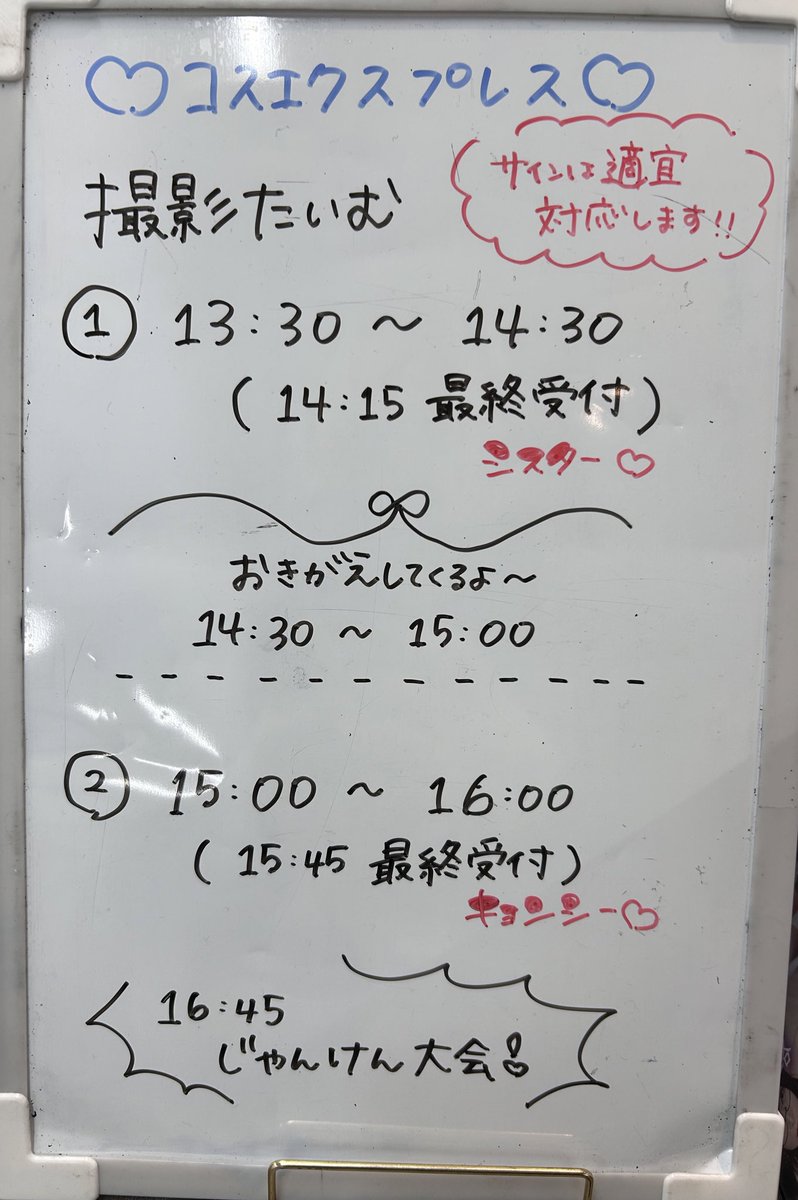 ♡コスエクスプレス♡
撮影たいむ
サインは適宜
対応します!!
① 13:30 〜 14:30
(14:15 最終受付)
シスター♡
おきがえしてくるよ〜
14:30 〜 15:00
② 15:00 〜 16:00
(15:45 最終受付)
キョンシー♡
16:45
じゃんけん大会!